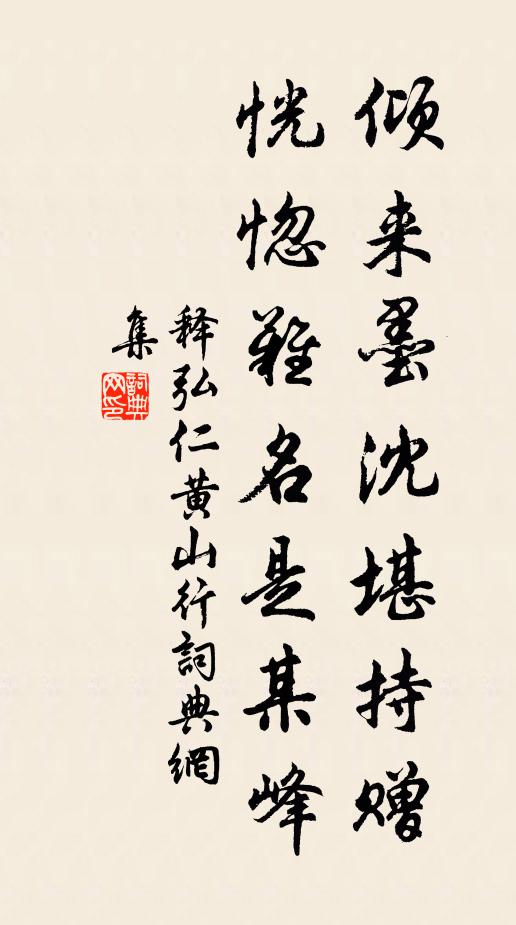 倾来墨沈堪持赠
恍惚难名是某峰
释弘仁黄山行詞典網
集
詞典
网印